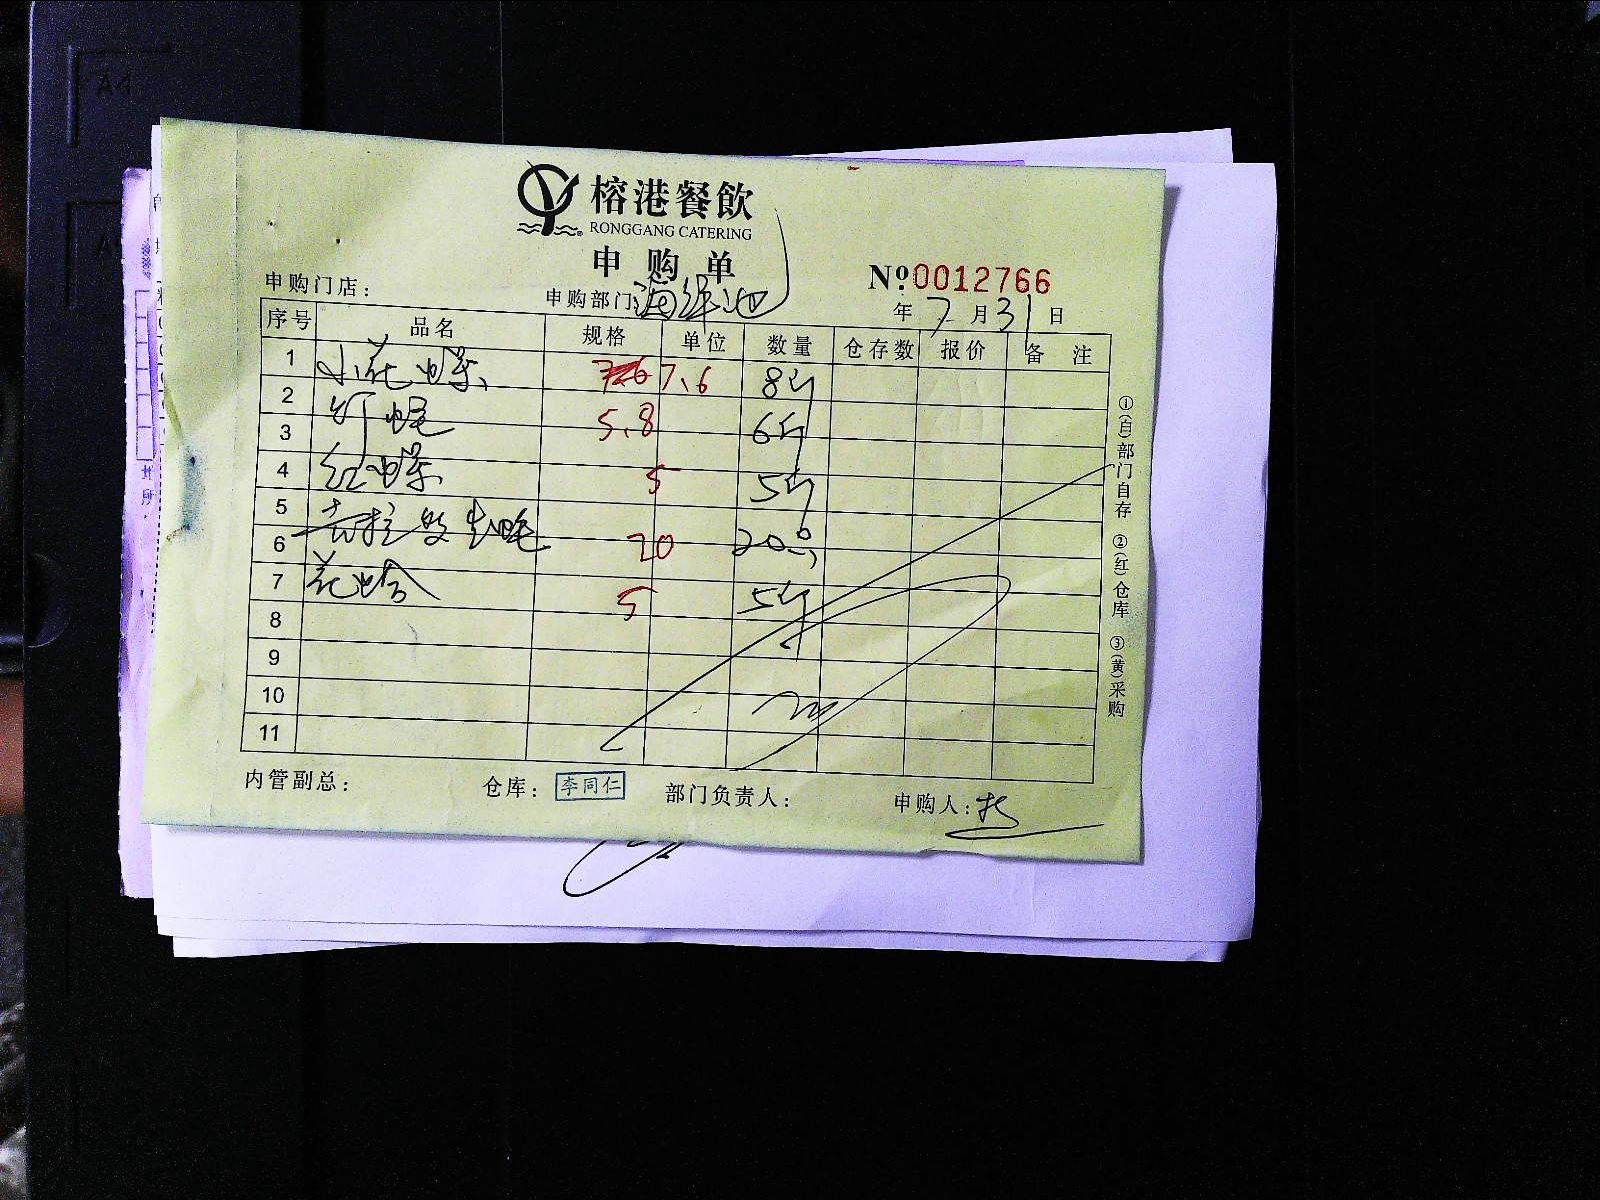 榕港餐飲
RONGGANG CATERING
申购单
№:0012766
申购门店:
申购部门:海鲜池
年7月31日
序号 品名 规格 单位 数量 仓存数 报价 备 注
1 小花螺 7.6 8斤
2
3 5.8 6斤
4 红螺 5 5斤
5
6 20 20
7 花蛤 5 5斤
8
9
10
11
①(白)部门自存 ②(红)仓库 ③(黄)采购
内管副总: 仓库: 李同仁 部门负责人: 申购人:
A4